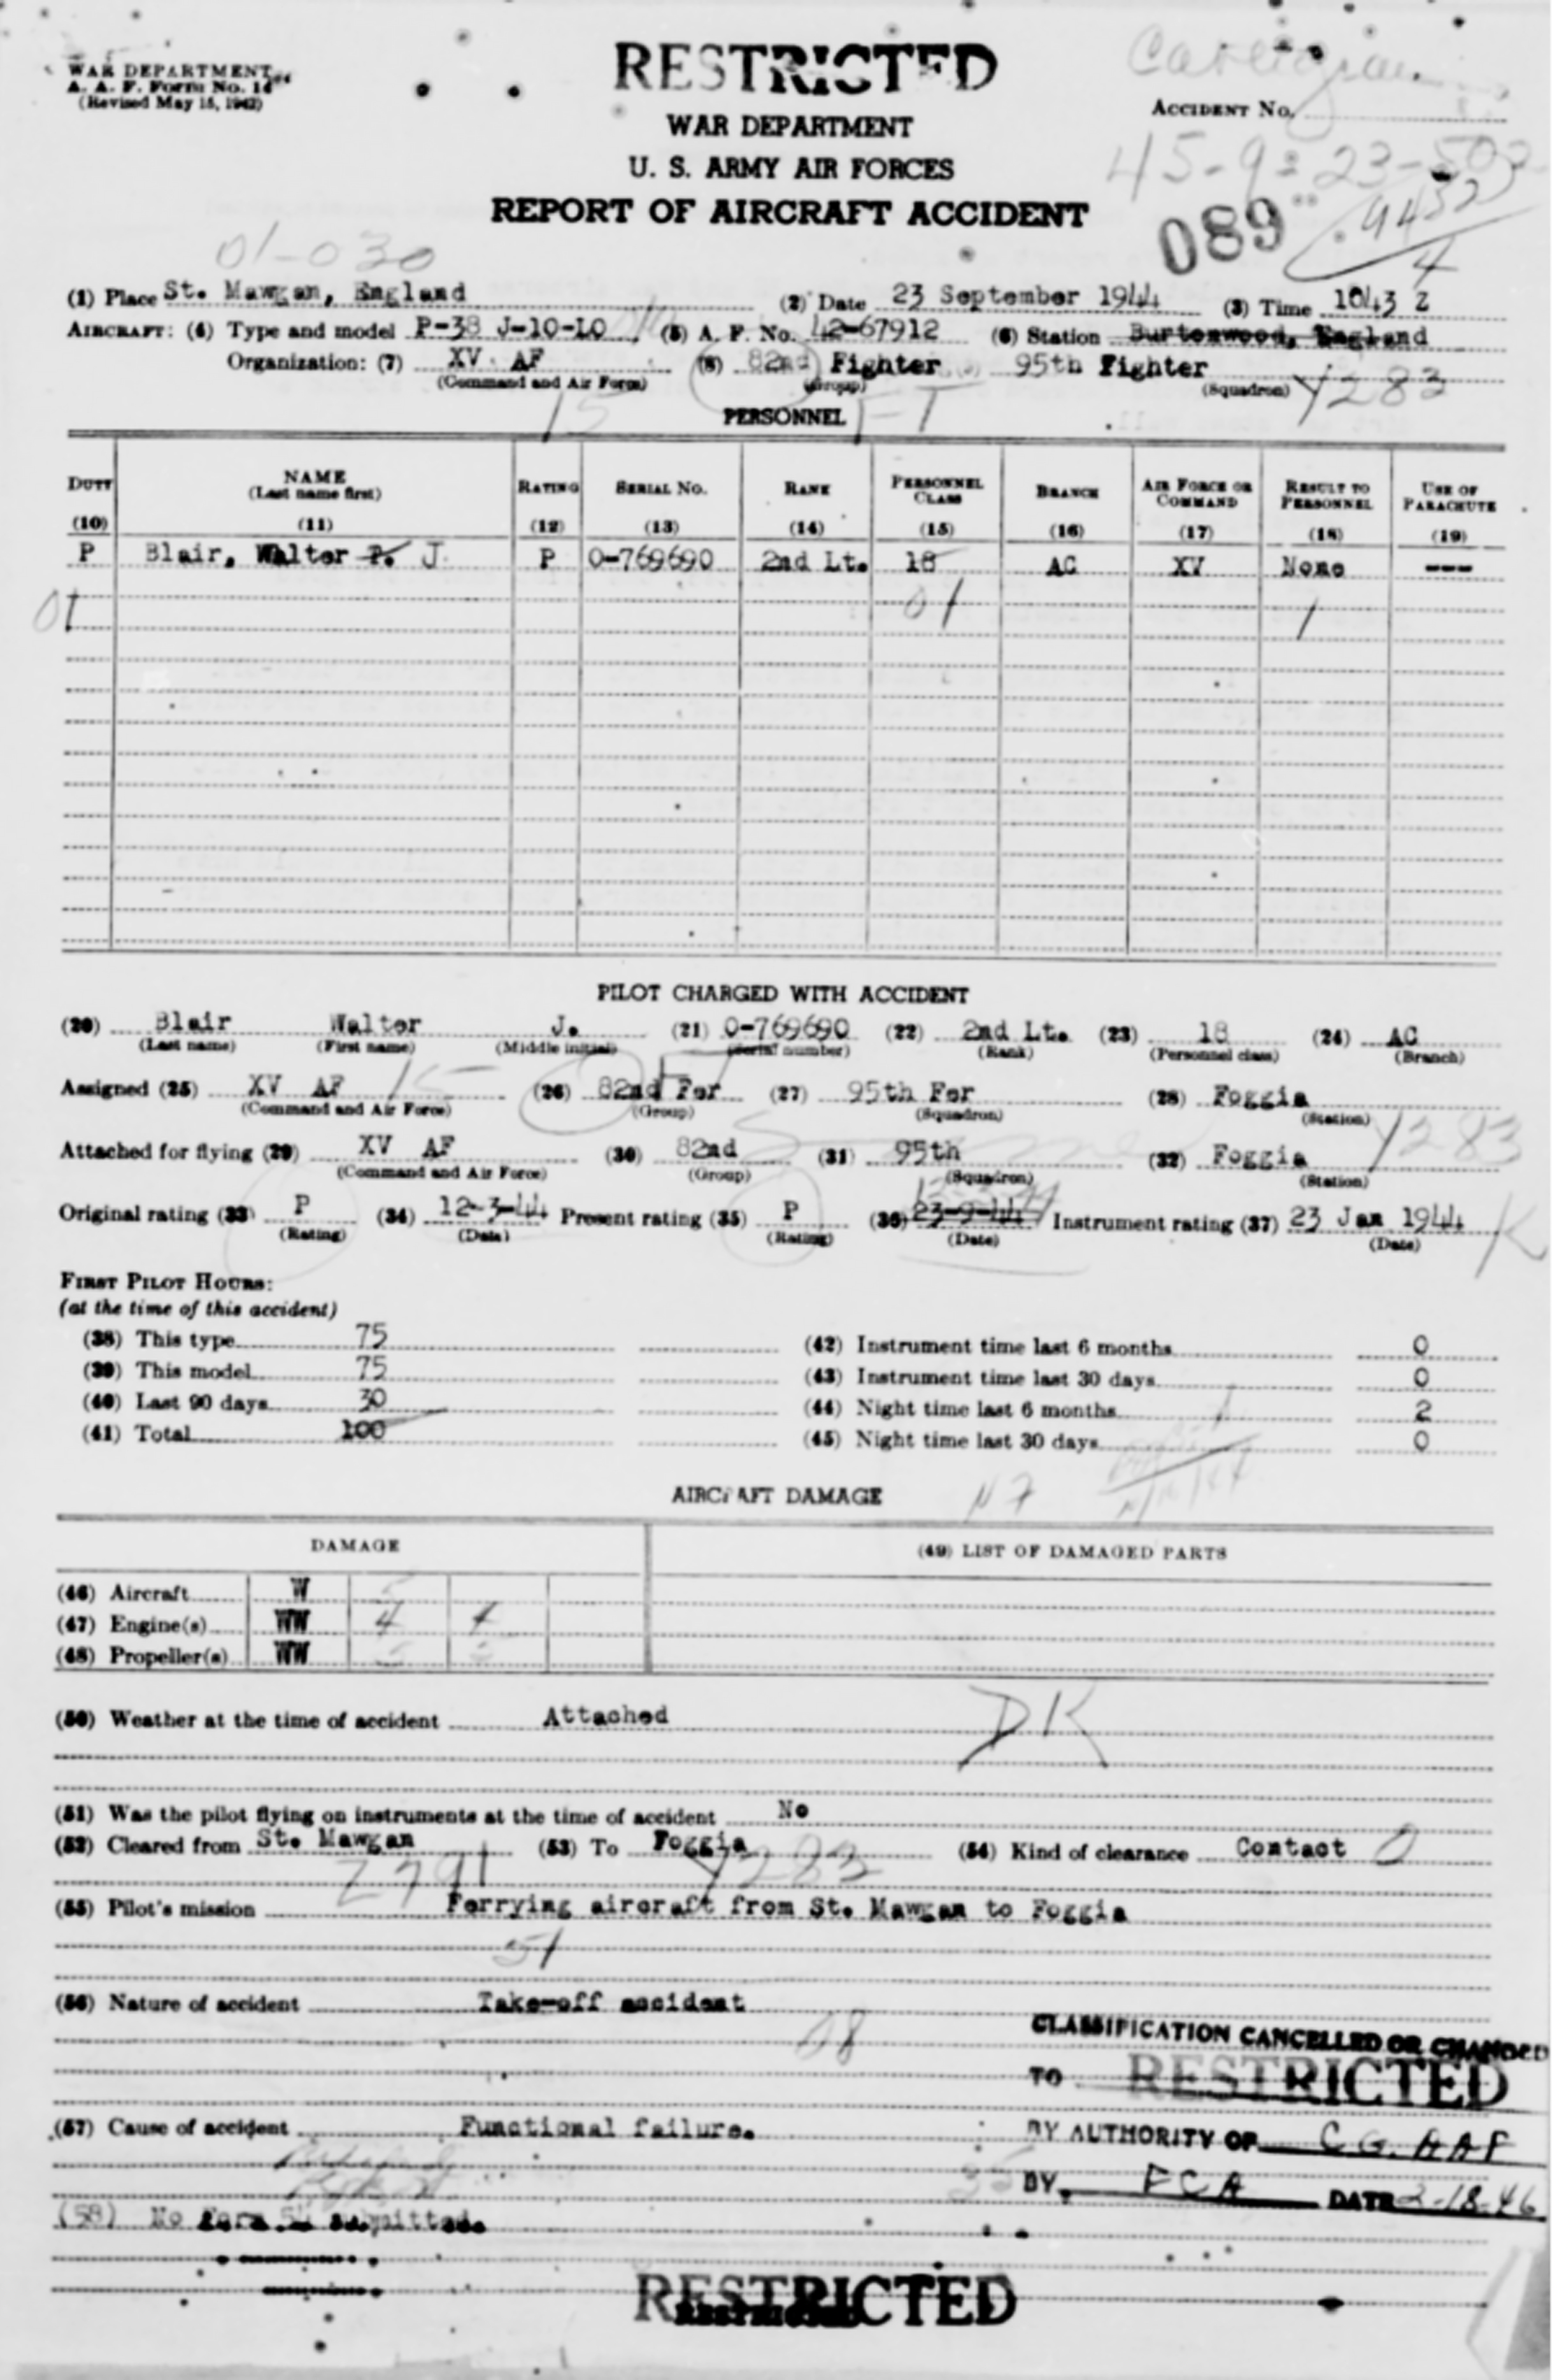 WAR DEPARTMENT
A. A. F. Form No. 14
(Revised May 15, 1942)
RESTRICTED
WAR DEPARTMENT
U. S. ARMY AIR FORCES
REPORT OF AIRCRAFT ACCIDENT
ACCIDENT No.
45-9-23-502
089
01-030
(1) Place St. Mawgan, England (2) Date 23 September 1944 (3) Time 1043 Z
AIRCRAFT: (4) Type and model P-38 J-10-LO (5) A. F. No. 42-67912 (6) Station Burtonwood, England
Organization: (7) XV AF (8) 82nd Fighter 95th Fighter
(Command and Air Force) (Group) (Squadron) 4283
15 FT
PERSONNEL
DUTY NAME (Last name first) RATING SERIAL NO. RANK PERSONNEL CLASS BRANCH AIR FORCE OR COMMAND RESULT TO PERSONNEL USE OF PARACHUTE
(10) (11) (12) (13) (14) (15) (16) (17) (18) (19)
P Blair, Walter P. J P O-769690 2nd Lt. 18 AC XV None ---
01 01 1
PILOT CHARGED WITH ACCIDENT
(20) Blair Walter J. (21) O-769690 (22) 2nd Lt. (23) 18 (24) AC
(Last name) (First name) (Middle initial) (Serial number) (Rank) (Personnel class) (Branch)
Assigned (25) XV AF 15 (26) 82nd Fer (27) 95th Fer (28) Foggia
(Command and Air Force) (Group) (Squadron) (Station)
4283
Attached for flying (29) XV AF (30) 82nd (31) 95th (32) Foggia
(Command and Air Force) (Group) (Squadron) (Station)
Original rating (33) P (34) 12-3-44 Present rating (35) P (36) 23-9-44 Instrument rating (37) 23 Jan 1944
(Rating) (Date) (Rating) (Date) (Date)
FIRST PILOT HOURS:
(at the time of this accident)
(38) This type 75 (42) Instrument time last 6 months 0
(39) This model 75 (43) Instrument time last 30 days 0
(40) Last 90 days 30 (44) Night time last 6 months 2
(41) Total 100 (45) Night time last 30 days 0
AIRCRAFT DAMAGE N7
DAMAGE (49) LIST OF DAMAGED PARTS
(46) Aircraft W
(47) Engine(s) WW 4
(48) Propeller(s) WW
(50) Weather at the time of accident Attached
DK
(51) Was the pilot flying on instruments at the time of accident No
(52) Cleared from St. Mawgan (53) To Foggia (54) Kind of clearance Contact 0
2791 4283
(55) Pilot's mission Ferrying aircraft from St. Mawgan to Foggia
51
(56) Nature of accident Take-off accident
08
CLASSIFICATION CANCELLED OR CHANGED
TO RESTRICTED
(57) Cause of accident Functional failure.
BY AUTHORITY OF C.G. AAF
BY FCA DATE 2-18-46
(58) No Form 54 submitted.
RESTRICTED